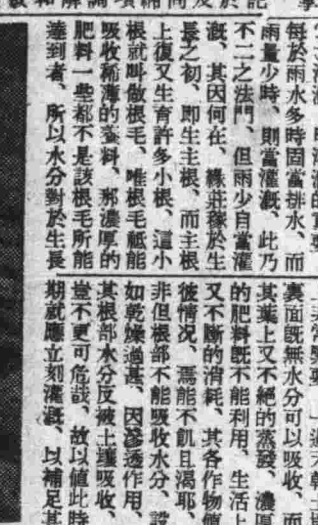 每於雨水多時固當排水、而
雨量少時、則當灌漑、此乃
不二之法門、但雨少自當灌
漑、其因何在、緣莊稼於生
長之初、即生主根、而主根
上復又生育許多小根、這小
根就叫做根毛、唯根毛祗能
吸收稀薄的養料、那濃厚的
肥料一些都不是該根毛所能
達到者、所以水分對於生長
裏面旣無水分可以吸收、而
其葉上又不絕的蒸發、濃厚
的肥料旣不能利用、生活上
又不斷的消耗、其各作物値
彼情况、焉能不飢且渴耶、
非但根部不能吸收水分、設
如乾燥過甚、因滲透作用、
其根部水分反被土壤吸收、
豈不更可危哉、故以值此時
期就應立刻灌漑、以補足其